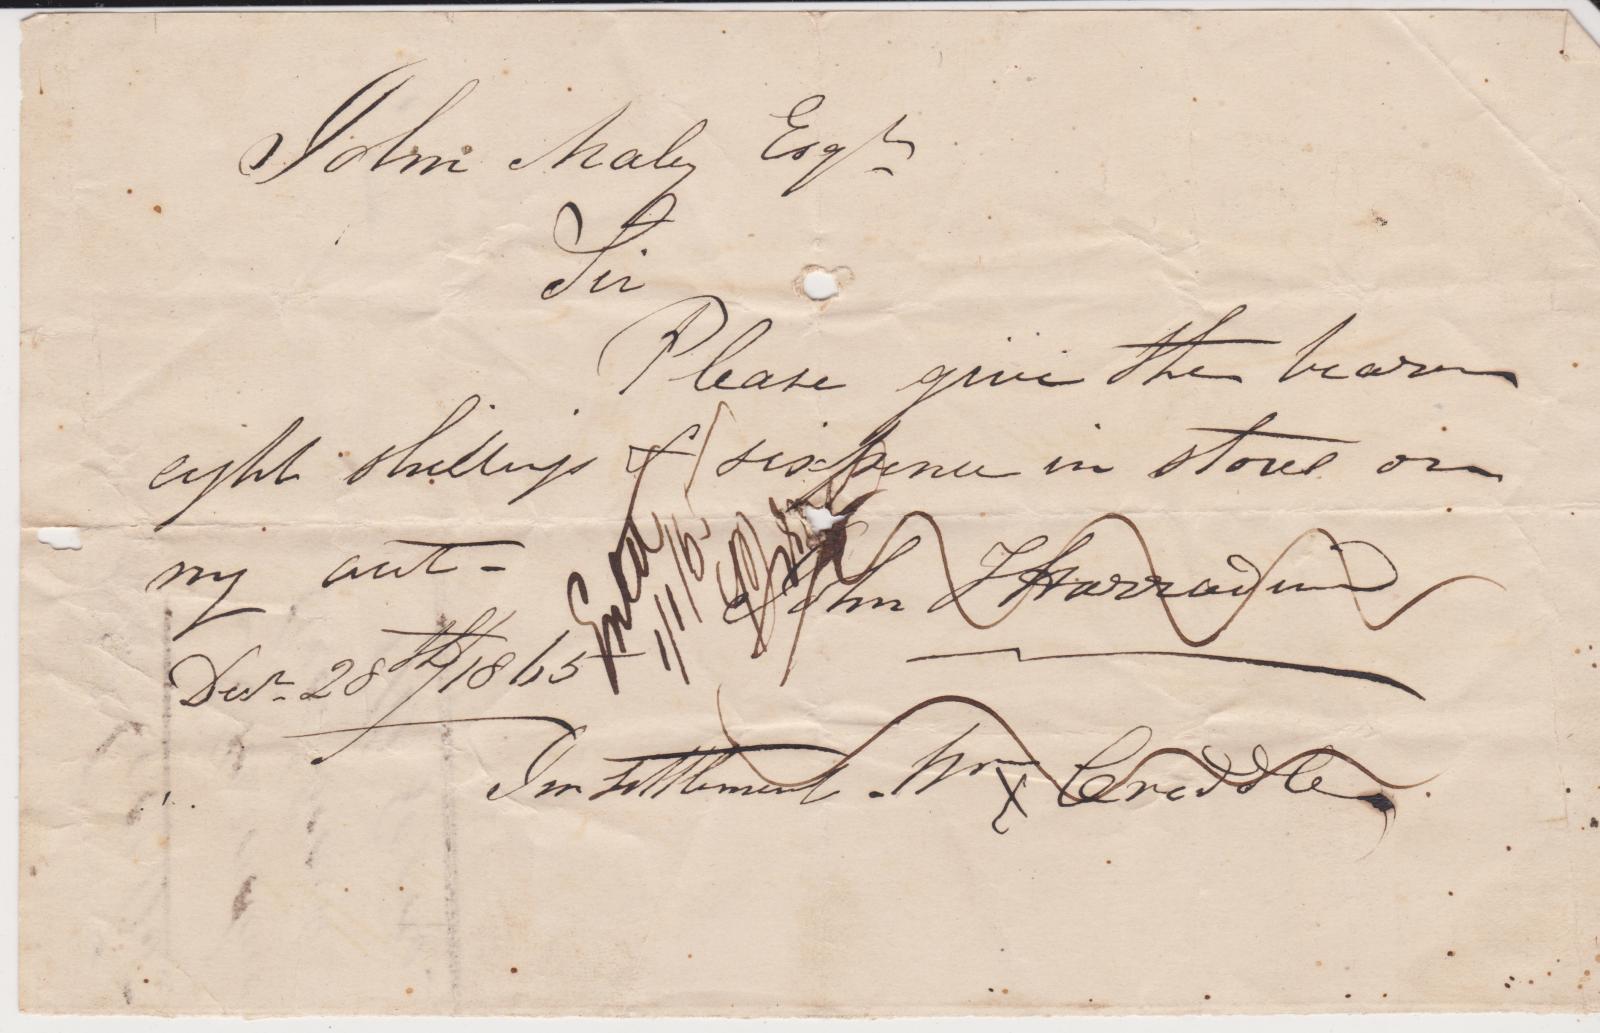 John Maley Esqr
Sir
Please give the bearer
eight shillings & sixpence in store on
my act-
John T Harradine
Decr 28th/1865
Entd
In settlement. Wm X Creddle